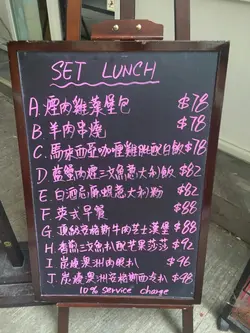 SET LUNCH
A. 煙肉雞蛋堡包 $78
B 羊肉串燒 $78
C. 馬來西亞咖喱雞腿配白飯 $78
D 藍蟹肉 三文魚意大利飯 $82
E 白酒 蜆意大利粉 $82
F. 英式早餐 $88
G. 頂級安格斯牛肉芝士漢堡 $88
H 香煎三文魚扒配芒果莎莎 $92
I 炭燒澳洲肉眼扒 $96
J. 炭燒澳洲安格斯西冷扒 $98
10% service charge